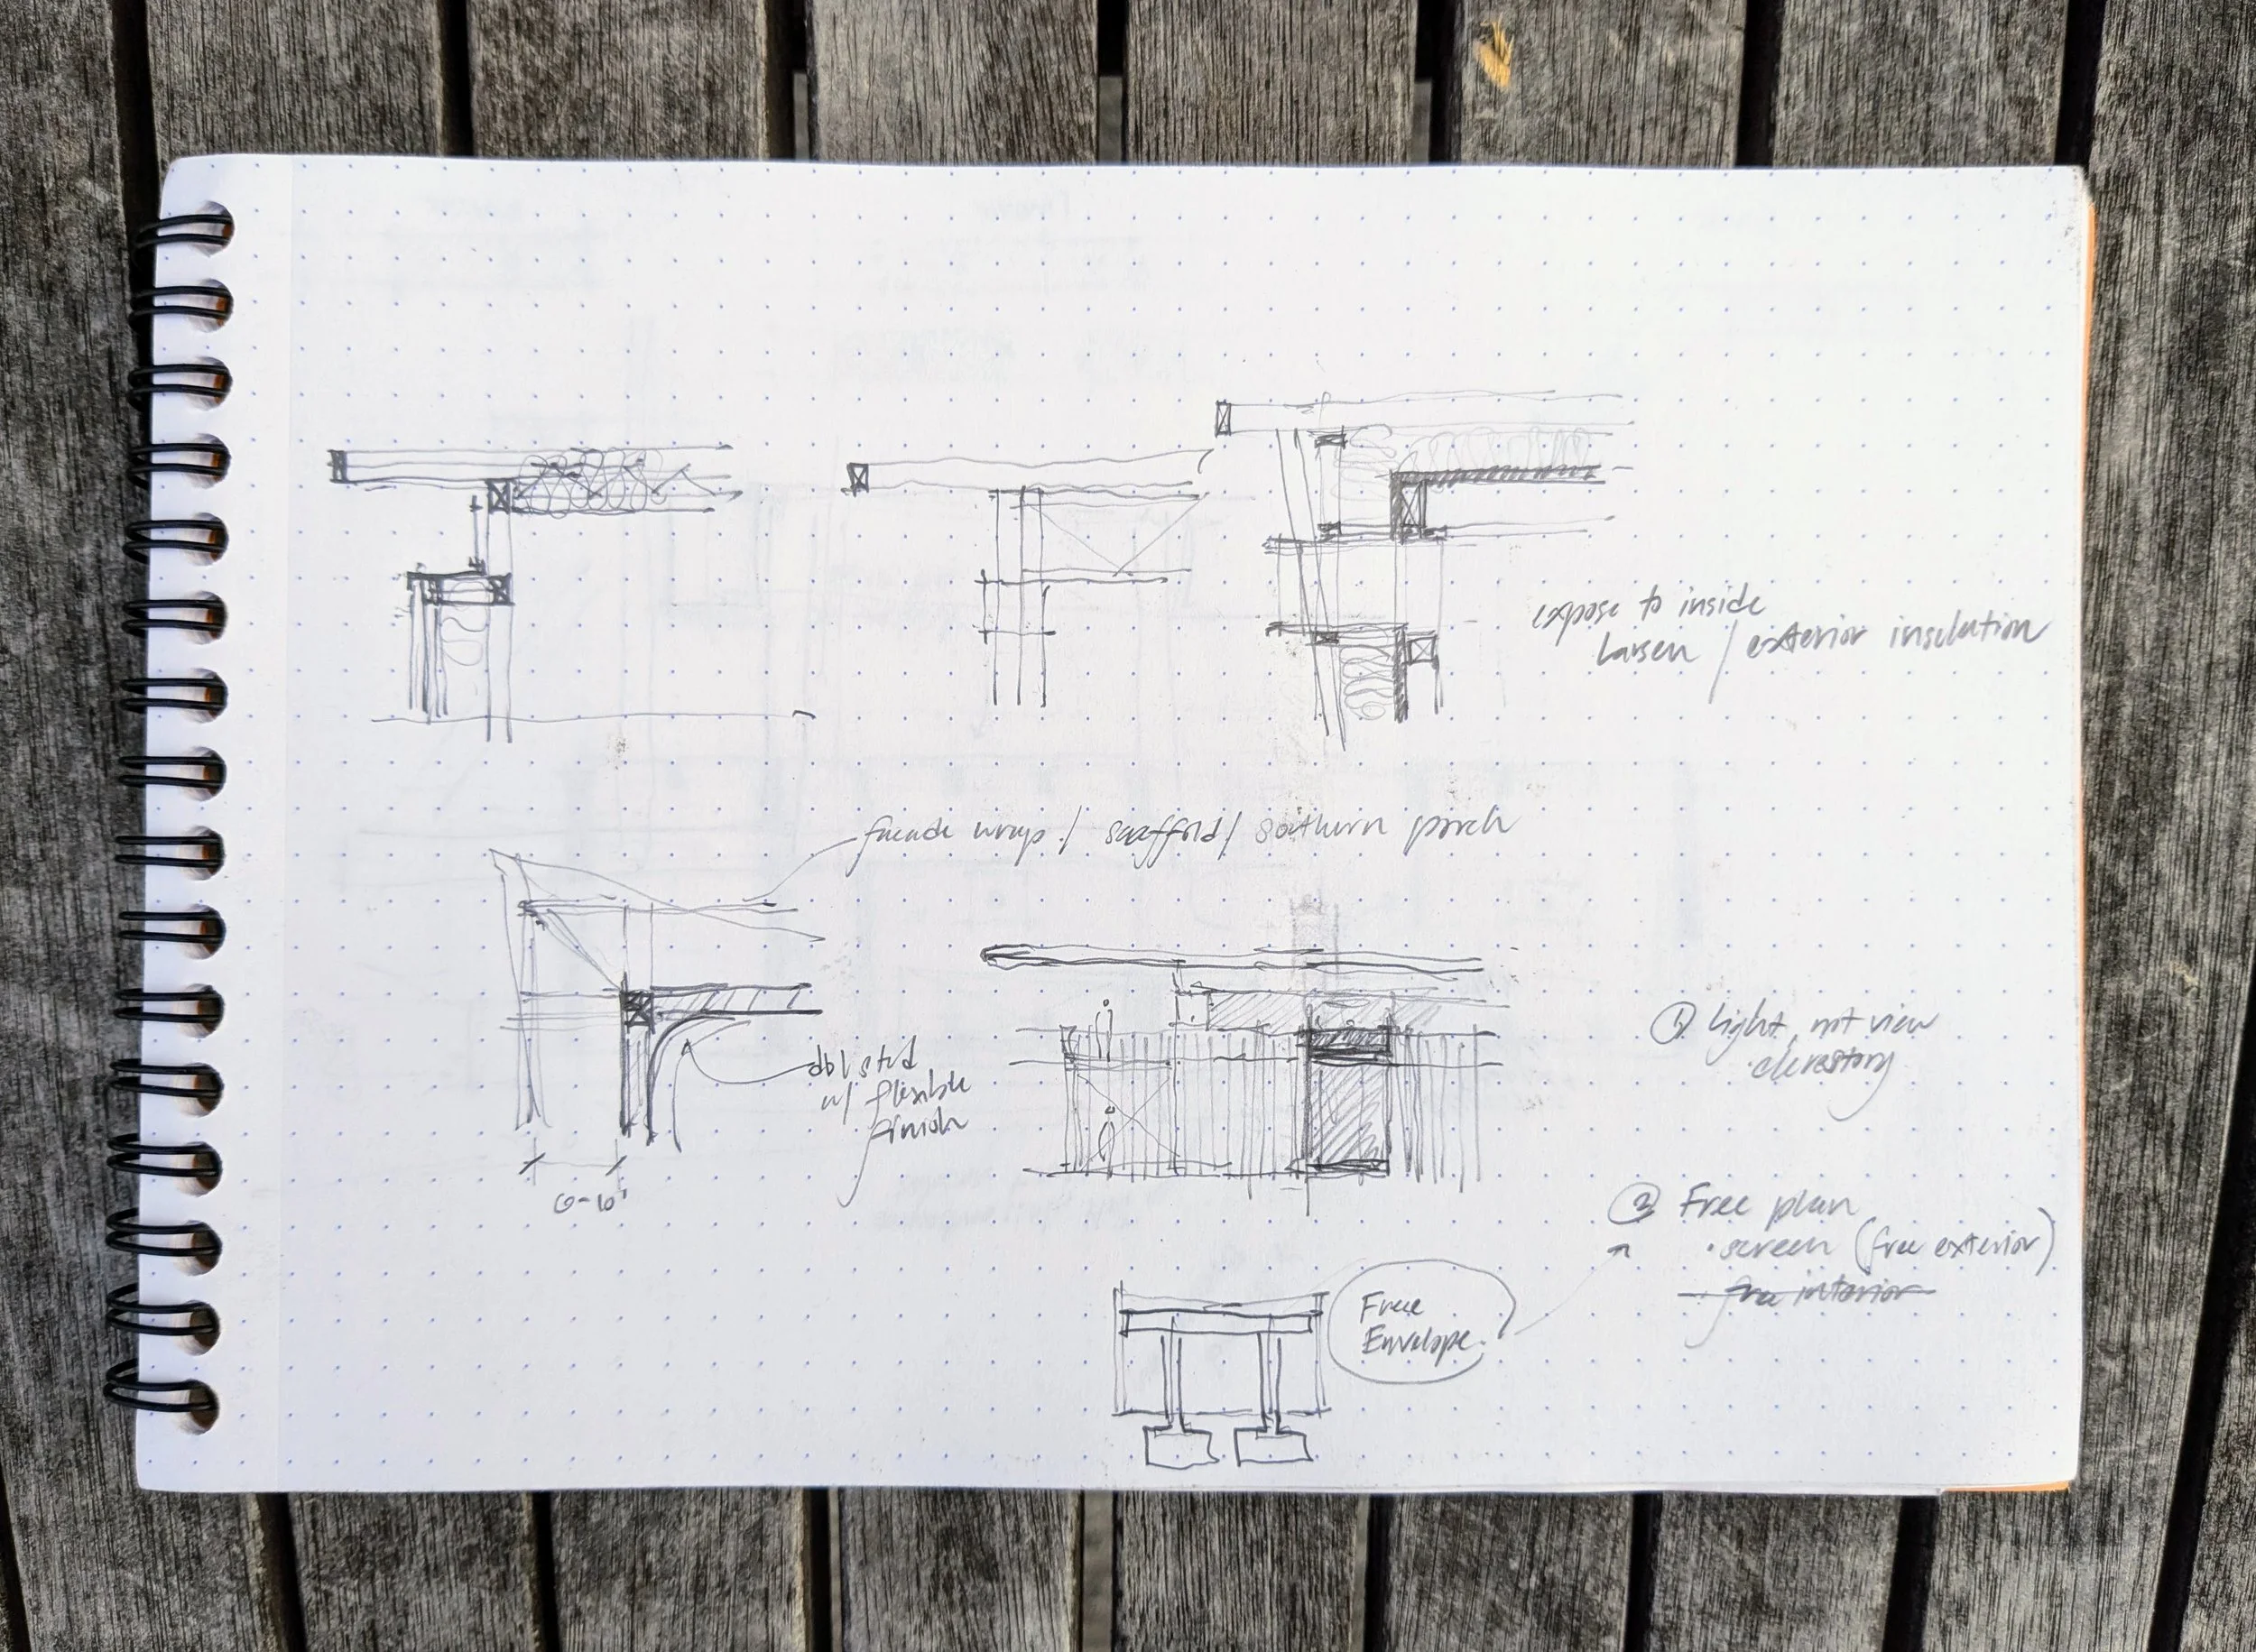 expose to inside
Larsen / exterior insulation
facade wrap / scaffold / southern porch
dbl stud
w/ flexible
finish
6-10'
① light, not view
· clerestory
② Free plan
· screen (free exterior)
free interior
Free
Envelope